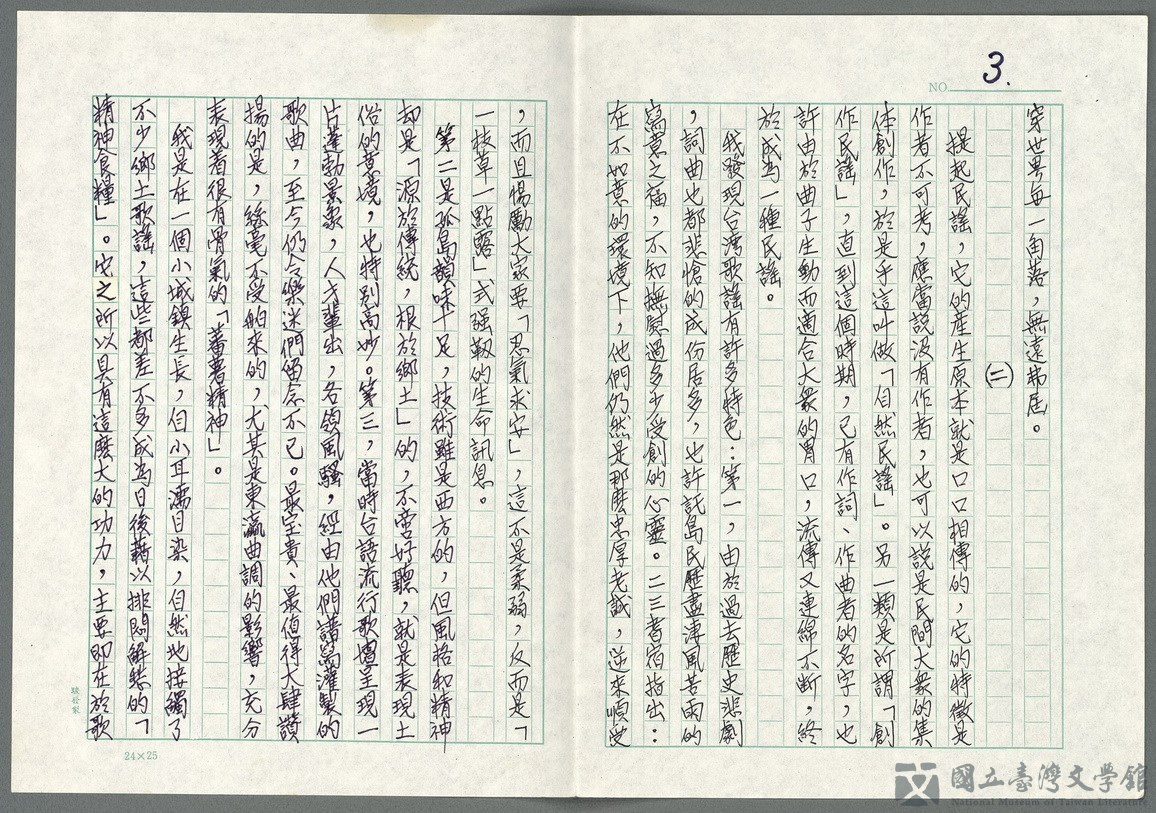 3.
NO
穿世界每一角落，無遠弗屆。
(二)
提起民謠，它的產生原本就是口口相傳的，它的特徵是
作者不可考，應當說沒有作者，也可以說是民間大衆的集
体創作，於是乎這叫做「自然民謠」。另一類是所謂「創
作民謠」，直到這個時期，已有作詞、作曲者的名字，也
許由於曲子生動而適合大衆的胃口，流傳又連綿不斷，終
於成為一種民謠。
我發現台灣歌謠有許多特色：第一，由於過去歷史悲劇
，詞曲也都悲愴的成份居多，也許託島民歷盡淒風苦雨的
寫意之福，不知撫慰過多少受創的心靈。二三耆宿指出：
在不如意的環境下，他們仍然是那麼忠厚老誠，逆來順受
，而且惕勵大家要「忍氣求安」，這不是柔弱，反而是「
一枝草一點露」式强韌的生命訊息。
第二是孤島韻味十足，技術雖是西方的，但風格和精神
却是「源於傳統，根於鄉土」的，不啻好聽，就是表現土
俗的意境，也特别高妙。第三，當時台語流行歌壇呈現一
片蓬勃景象，人才輩出，各領風騷，經由他們譜寫灌製的
歌曲，至今仍令樂迷們留念不已。最宝貴、最值得大肆讚
揚的是，絲毫不受舶來的，尤其是東瀛曲調的影響，充分
表現着很有骨氣的「蕃薯精神」。
我是在一個小城鎮生長，自小耳濡目染，自然地接觸了
不少鄉土歌謠，這些都差不多成為日後藉以排悶解愁的「
精神食糧」。它之所以具有這麼大的功力，主要即在於歌
24×25
國立臺灣文學館
National Museum of Taiwan Literature